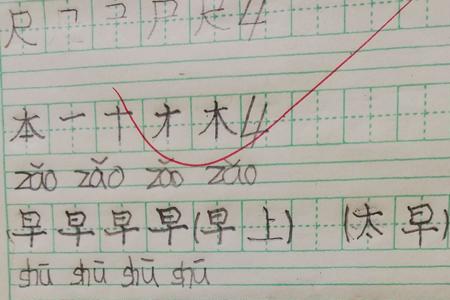 尺 ㇕ コ 尸 尺 4
本 一 十 才 木 4
zǎo zǎo zǎo zǎo
早 早 早 早 (早 上) (太 早)
shū shū shū shū